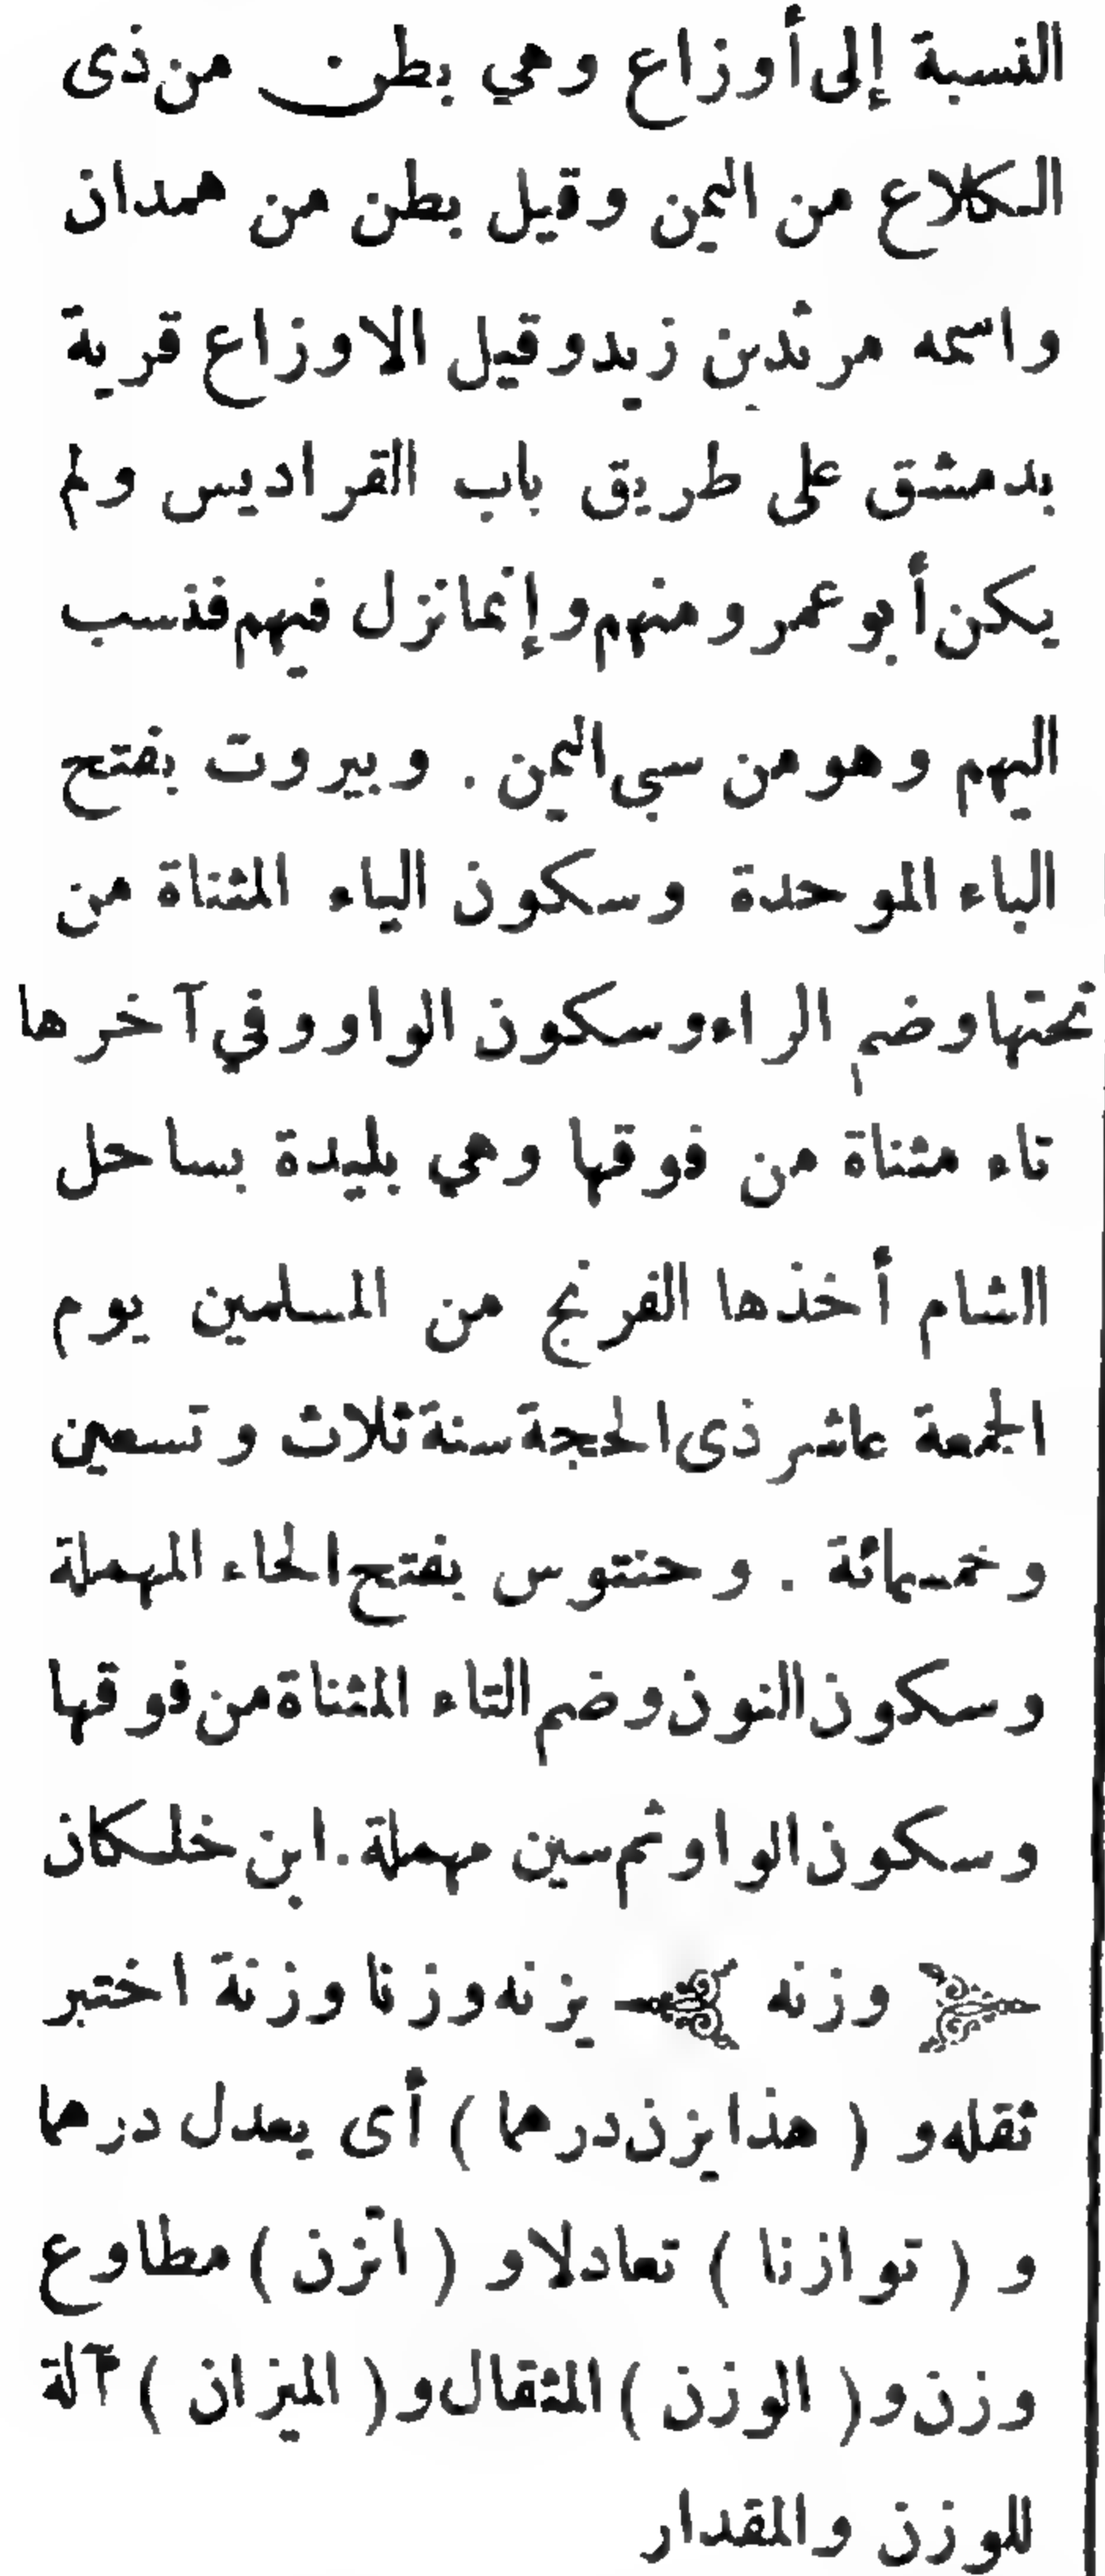 النسبة إلى أوزاع وهي بطن من ذى
الكلاع من اليمن وقيل بطن من همدان
واسمه مرثد بن زيد وقيل الاوزاع قرية
بدمشق على طريق باب القراديس ولم
يكن أبو عمرو منهم وإنما نزل فيهم فنسب
اليهم وهو من سبى اليمن . وبيروت بفتح
الباء الموحدة وسكون الياء المثناة من
تحتها وضم الراء وسكون الواو وفي آخرها
تاء مثناة من فوقها وهي بليدة بساحل
الشام أخذها الفرنج من المسلمين يوم
الجمعة عاشر ذى الحجة سنة ثلاث وتسعين
وخمسمائة . وحنتوس بفتح الحاء المهملة
وسكون النون وضم التاء المثناة من فوقها
وسكون الواو ثم سين مهملة . ابن خلكان
وزنه يزنه وزنا وزنة اختبر
ثقله و ( هذا يزن درهما ) أى يعدل درهما
و ( توازنا ) تعادلا و ( اتزن ) مطاوع
وزن و ( الوزن ) المثقال و ( الميزان ) آلة
للوزن والمقدار